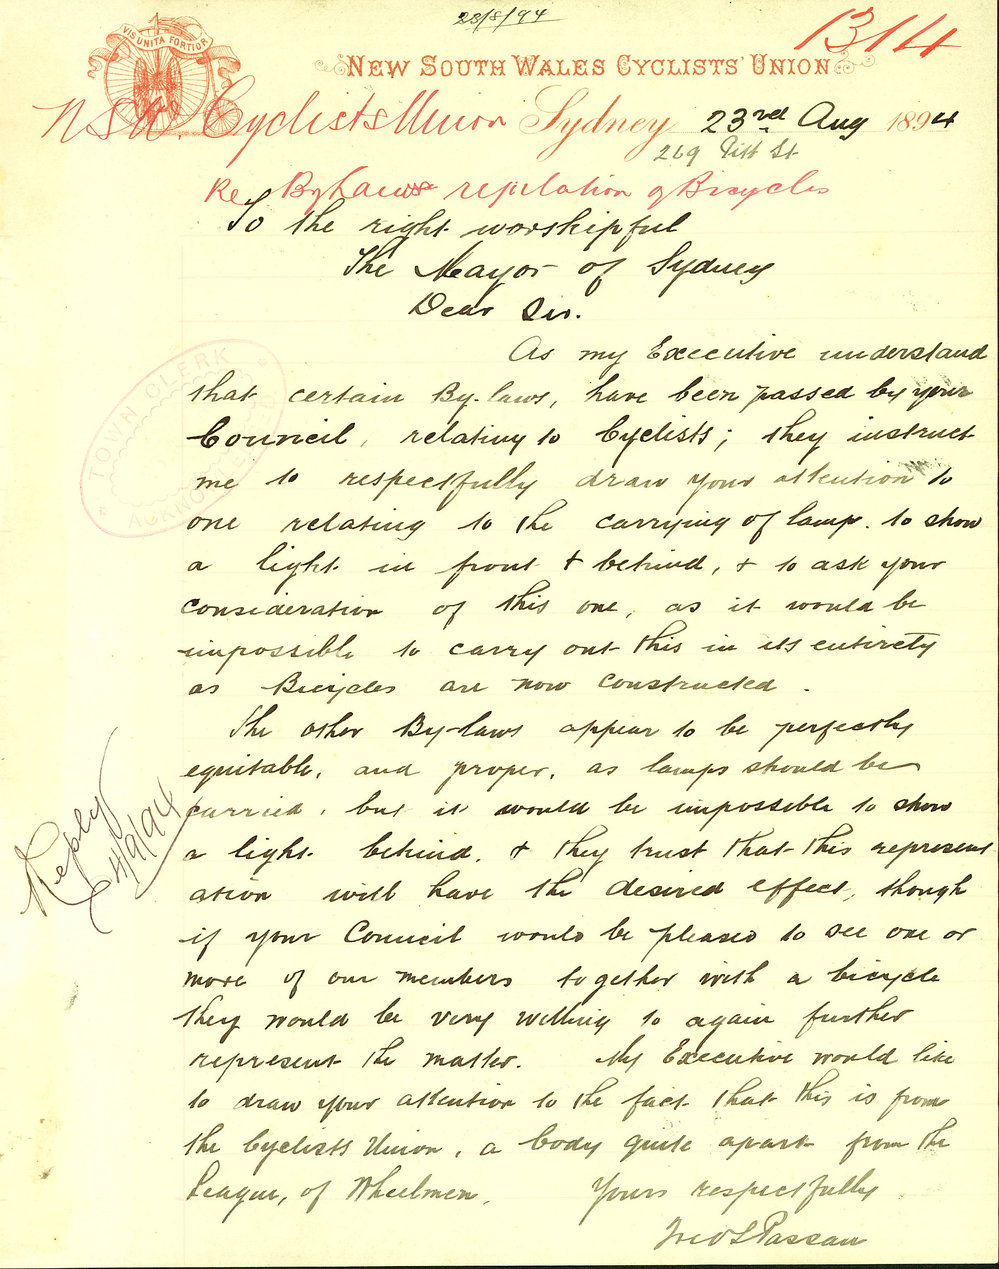 28/8/94
1314
VIS UNITA FORTIOR
NEW SOUTH WALES CYCLISTS' UNION
NSW. Cyclists Union
Sydney 23rd Aug 1894
269 Pitt St
Re By Laws regulation of Bicycles
To the right worshipful
The Mayor of Sydney
Dear Sir.
As my Executive understand
that certain By-laws, have been passed by your
Council, relating to Cyclists; they instruct
me to respectfully draw your attention to
one relating to the carrying of lamp. to show
a light in front & behind, & to ask your
consideration of this one, as it would be
impossible to carry out this in its entirety
as Bicycles are now constructed.
The other By-laws appear to be perfectly
equitable, and proper, as lamps should be
carried, but it would be impossible to show
a light behind, & they trust that this represent
ation will have the desired effect, though
if your Council would be pleased to see one or
more of our members together with a bicycle
they would be very willing to again further
represent the matter. My Executive would like
to draw your attention to the fact that this is from
the Cyclists Union, a body quite apart from the
League, of Wheelmen.
Yours respectfully
TOWN CLERK
Reply
4/9/94